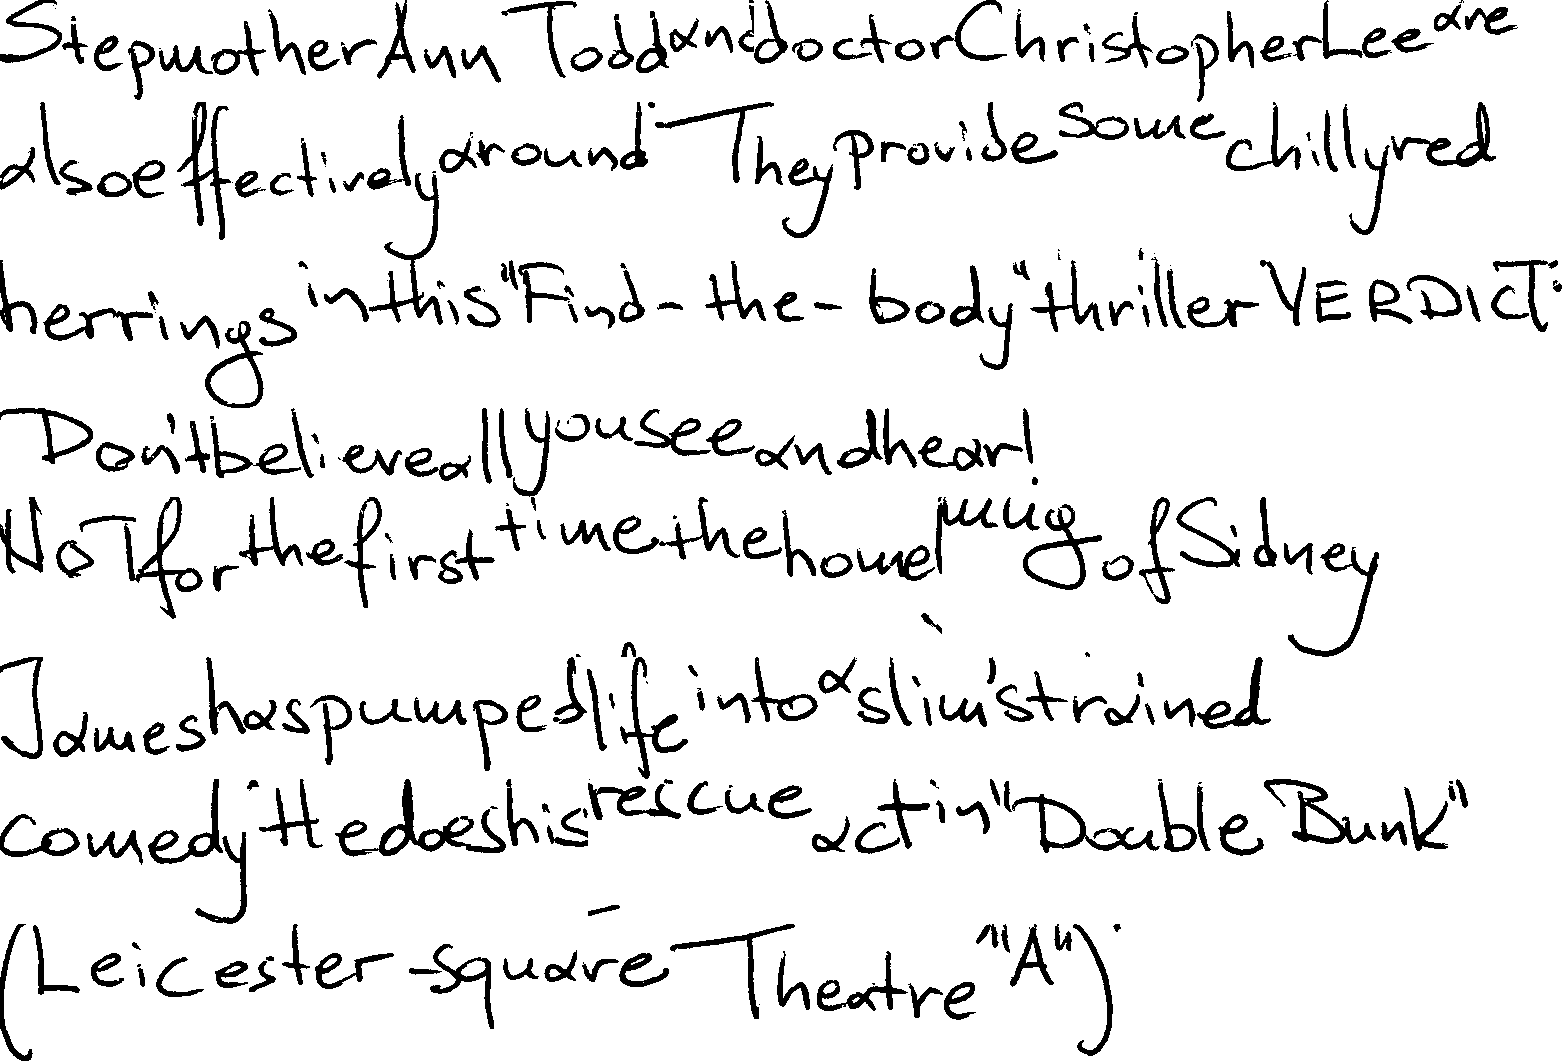 Stepmother Ann Todd and doctor Christopher Lee are
also effectively around. They provide some chilly red
herrings in this "Find-the-body" thriller VERDICT:
Don't believe all you see and hear!
NOT for the first time the homely mug of Sidney
James has pumped life into a slim, strained
comedy. He does his rescue act in "Double Bunk"
(Leicester-square Theatre "A").